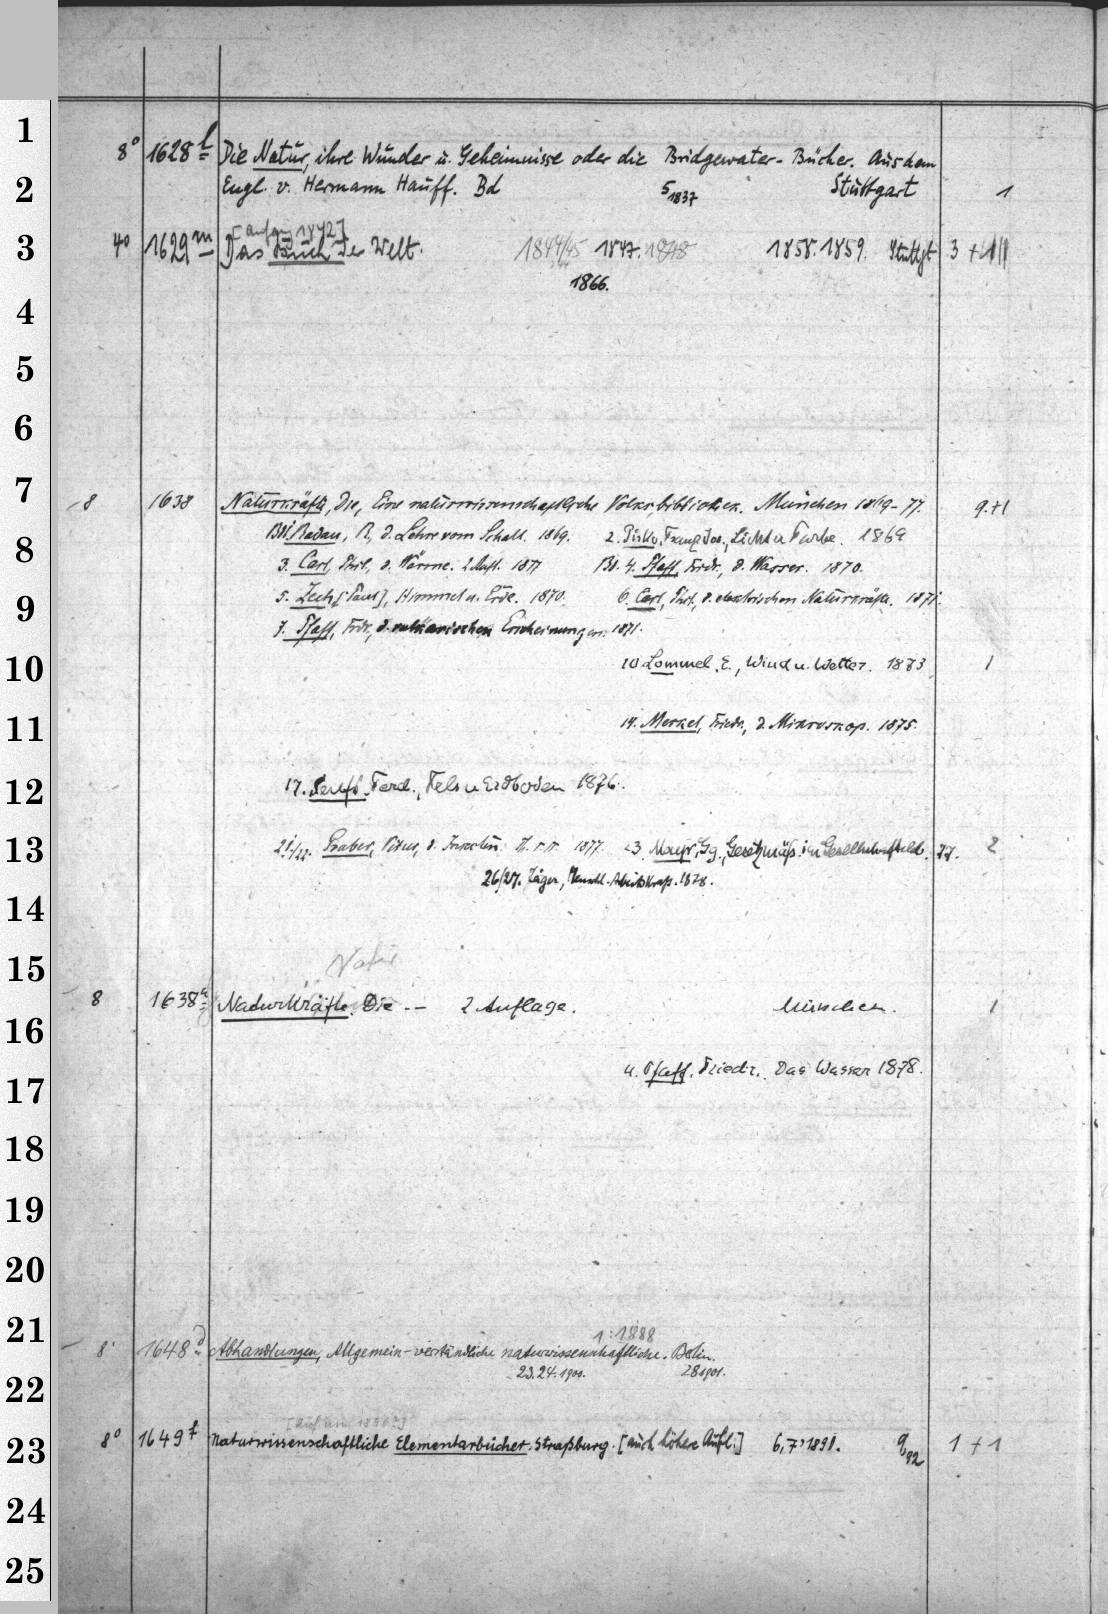 1
8° 1628 l Die Natur, ihre Wunder u. Geheimnisse oder die Bridgewater-Bücher. Aus dem
2
Engl. v. Hermann Hauff. Bd 5 1837 Stuttgart 1
3
4° 1629 m Das Buch der Welt. 1844/45 1847. 1848 1858. 1859. Stuttgt 3 +
1866.
4
5
6
7
8 1638 Naturkräfte, Die, Eine naturwissenschaftliche Volksbibliothek. München 1869-77. 9.+1
Bd 1. Radau, R, d. Lehre vom Schall. 1869. 2. Pisko, Franz Jos., Licht u Farbe. 1869
8
3. Carl, Phil., d. Wärme. 2. Aufl. 1877 Bd. 4. Pfaff, Friedr., d. Wasser. 1870.
9
5. Zech, [Paul], Himmel u. Erde. 1870. 6. Carl, Phil., d. elektrischen Naturkräfte. 1871.
7. Pfaff, Friedr., d. vulkanischen Erscheinungen. 1871.
10
10 Lommel, E., Wind u. Wetter. 1873 1
11
14. Merkel, Friedr., d. Mikroskop. 1875.
12
17. Senft, Ferd., Fels u Erdboden 1876.
13
21./22. Graber, Vitus, d. Insekten. 1877. 23. Mayr, Gg., Gesetzmäß. im Gesellschaftsleb. 77. 2
26/27. Jäger, Menschl. Arbeitskraft. 1878.
14
15
Natur
8 1638 a Naturkräfte. Die -- 2 Auflage. München. 1
16
4. Pfaff, Friedr., Das Wasser 1878.
17
18
19
20
21
1:1888
8° 1648 d Abhandlungen, Allgemein-verständliche naturwissenschaftliche. Berlin.
22
23.24. 1900. 28 1901.
23
8° 1649 f Naturwissenschaftliche Elementarbücher. Straßburg. [auch höhere Aufl.] 6,7 1891. 9 92 1 + 1
24
25